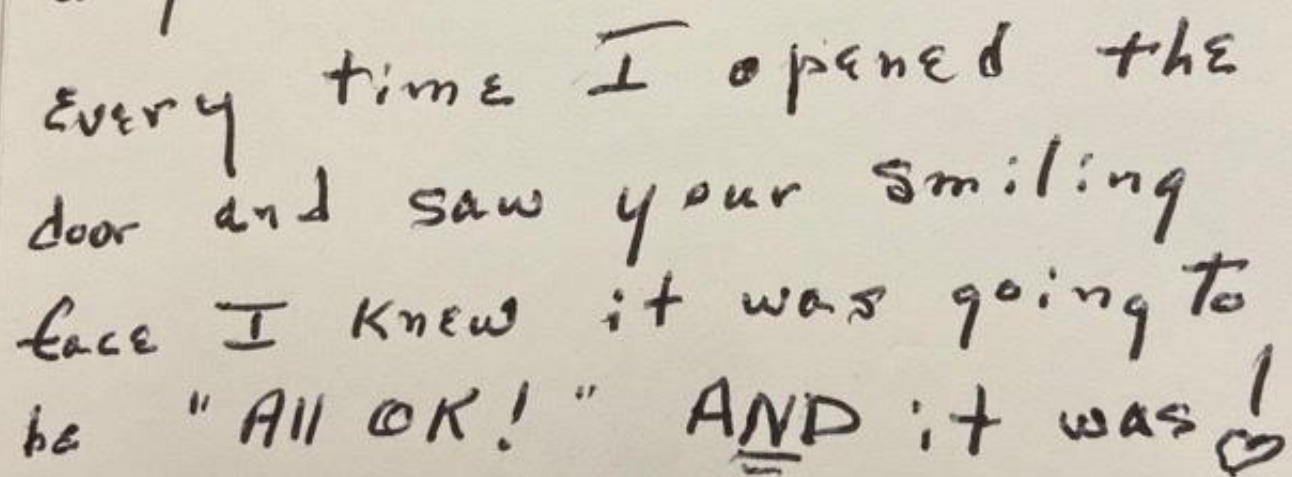 every time I opened the
door and saw your smiling
face I knew it was going to
be "All OK!" AND it was! ♡